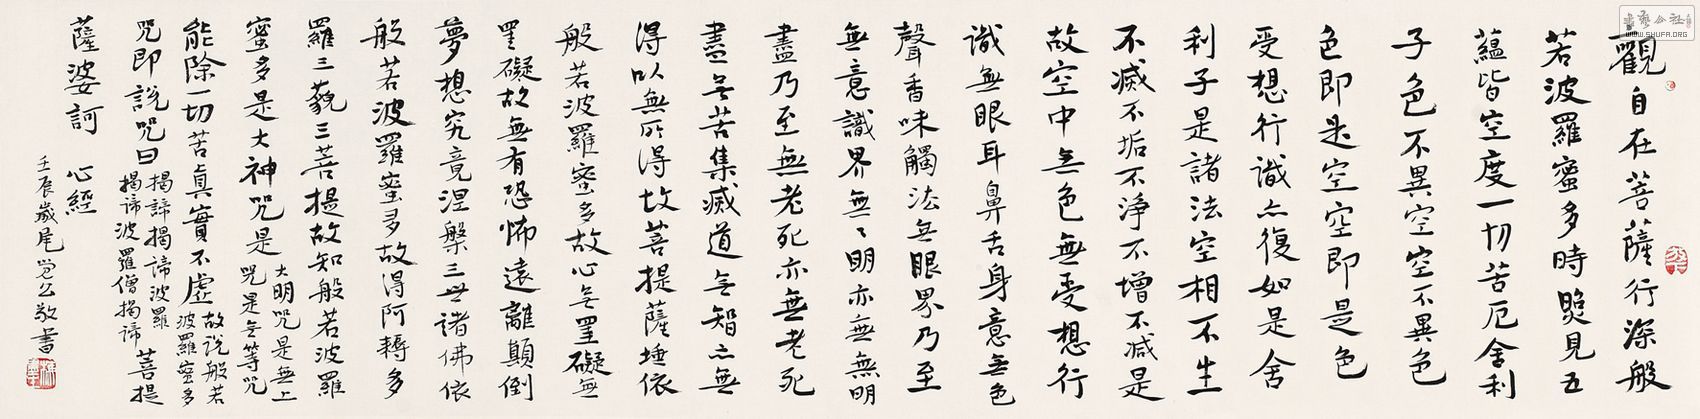 觀自在菩薩行深般
若波羅蜜多時照見五
蘊皆空度一切苦厄舍利
子色不異空空不異色
色即是空空即是色
受想行識亦復如是舍
利子是諸法空相不生
不滅不垢不淨不增不減是
故空中无色無受想行
識無眼耳鼻舌身意无色
聲香味觸法无眼界乃至
無意識界無〻明亦無無明
盡乃至無老死亦無老死
盡无苦集滅道无智亦無
得以無所得故菩提薩埵依
般若波羅蜜多故心无罣礙無
罣礙故無有恐怖遠離顛倒
夢想究竟涅槃三世諸佛依
般若波羅蜜多故得阿耨多
羅三藐三菩提故知般若波羅
蜜多是大神咒是
大明咒是無上
咒是无等咒
能除一切苦真實不虛
故說般若
波羅蜜多
咒即說咒曰
揭諦揭諦波羅
揭諦波羅僧揭諦
菩提
薩婆訶 心經
壬辰歲尾覺公敬書
書藝公社
WWW.SHUFA.ORG